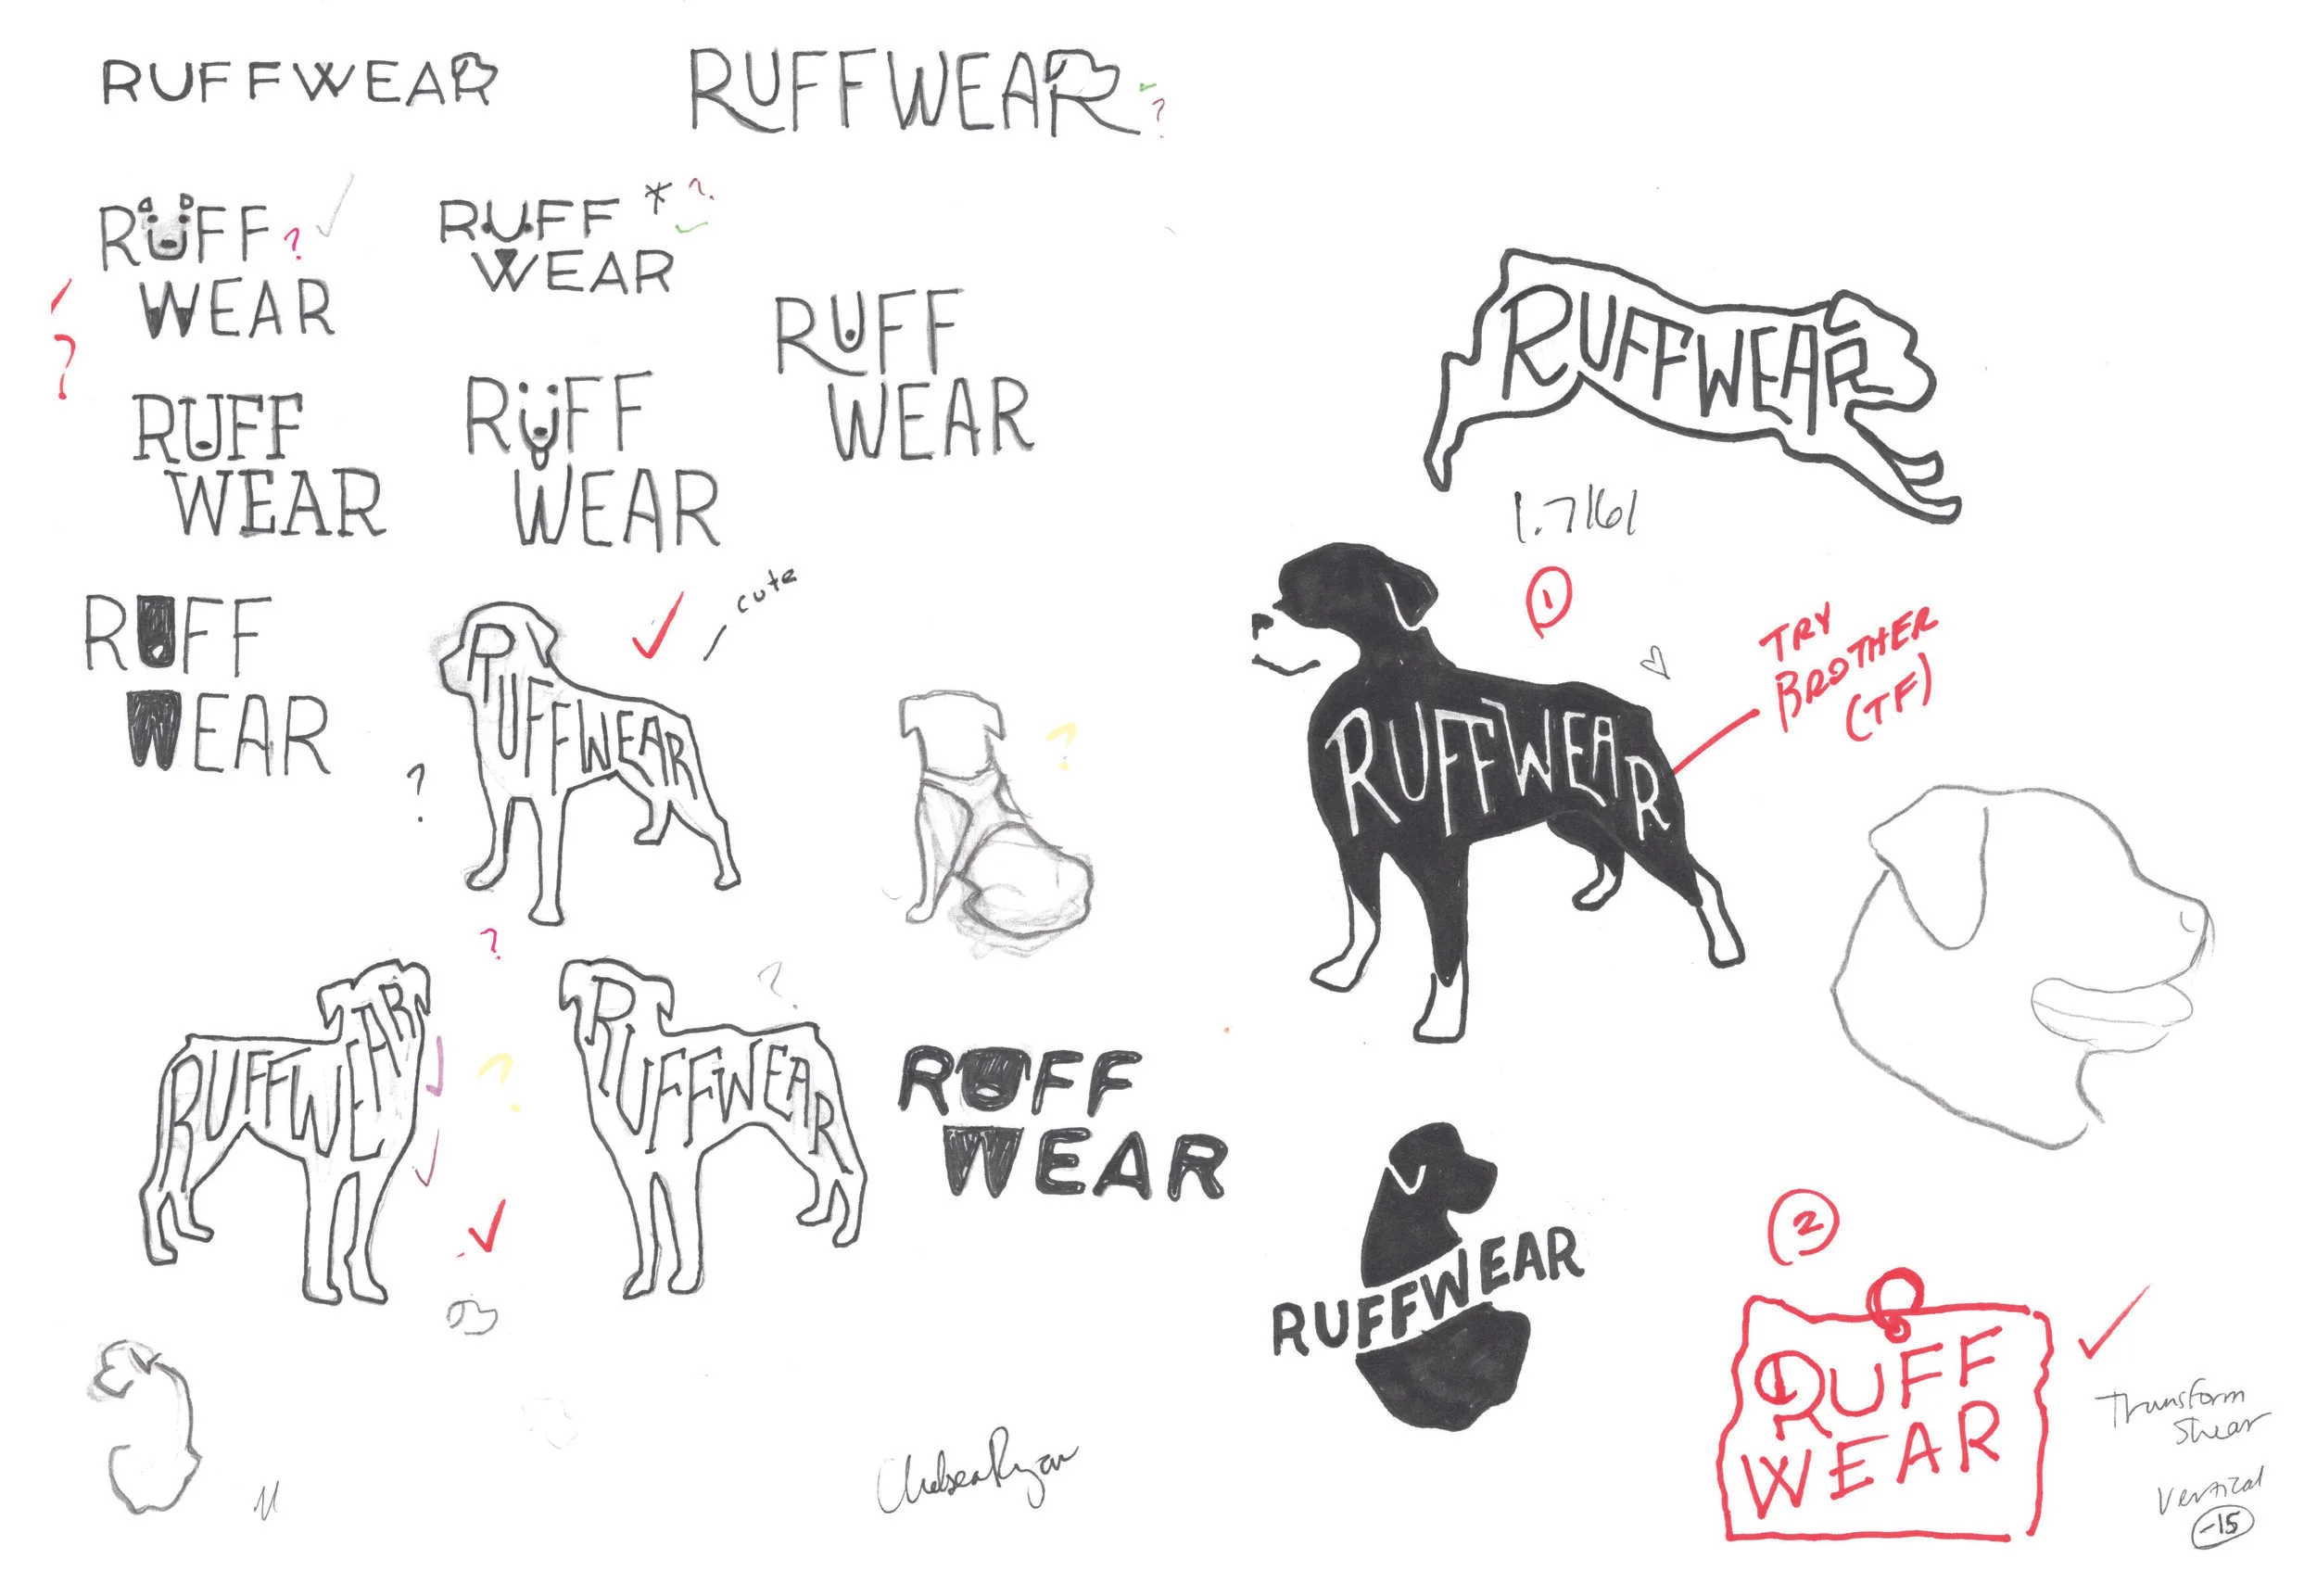 RUFFWEAR
RUFFWEAR
?
RUFF
WEAR
?
RUFF
WEAR
* ?
?
RUFF
WEAR
RUFF
WEAR
RUFF
WEAR
RUFF
WEAR
cute
RUFFWEAR
?
?
?
RUFFWEAR
?
RUFFWEAR
?
RUFF
WEAR
Chelsea Ryan
RUFFWEAR
1.7161
1
TRY
BROTHER
(TF)
RUFFWEAR
RUFFWEAR
2
RUFF
WEAR
Transform
Shear
Vertical
-15